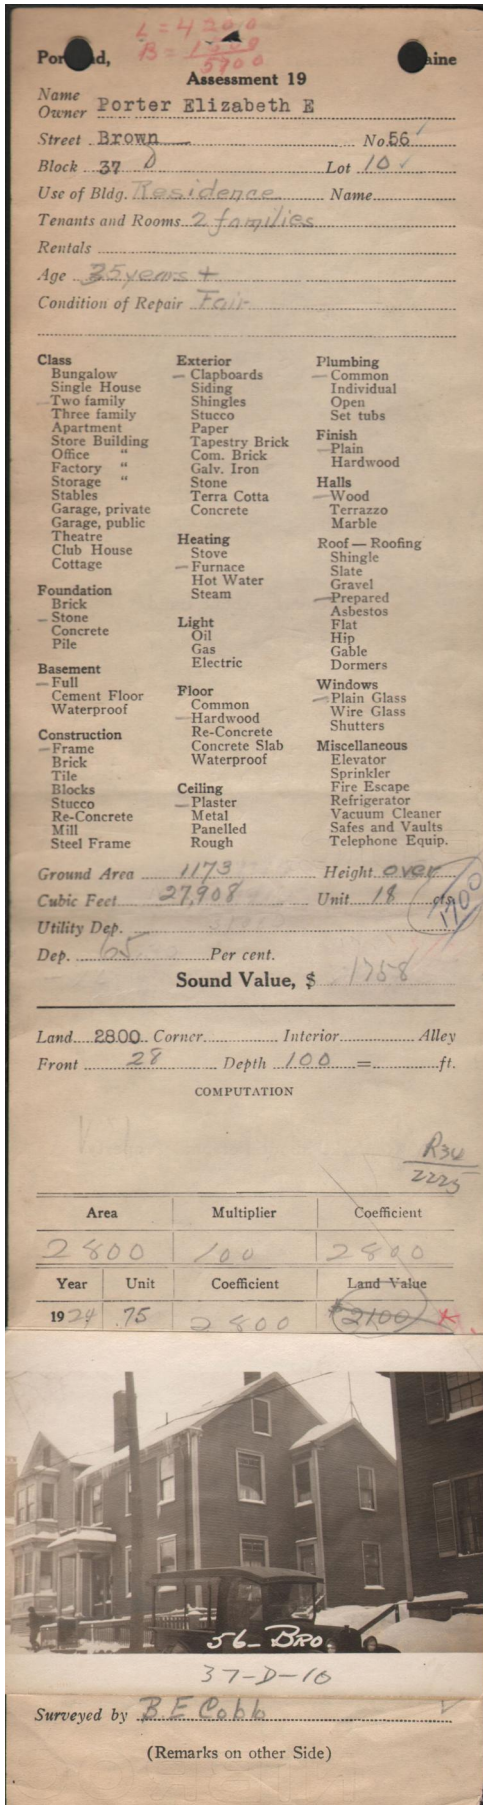 L = 4200
B = 1500
5700
Portland, Maine
Assessment 19
Name
Owner Porter Elizabeth E
Street Brown No. 56
Block 37 D Lot 10
Use of Bldg. Residence Name
Tenants and Rooms 2 families
Rentals
Age 35 years +
Condition of Repair Fair
Class
Bungalow
Single House
Two family
Three family
Apartment
Store Building
Office "
Factory "
Storage "
Stables
Garage, private
Garage, public
Theatre
Club House
Cottage
Foundation
Brick
Stone
Concrete
Pile
Basement
Full
Cement Floor
Waterproof
Construction
Frame
Brick
Tile
Blocks
Stucco
Re-Concrete
Mill
Steel Frame
Exterior
Clapboards
Siding
Shingles
Stucco
Paper
Tapestry Brick
Com. Brick
Galv. Iron
Stone
Terra Cotta
Concrete
Heating
Stove
Furnace
Hot Water
Steam
Light
Oil
Gas
Electric
Floor
Common
Hardwood
Re-Concrete
Concrete Slab
Waterproof
Ceiling
Plaster
Metal
Panelled
Rough
Plumbing
Common
Individual
Open
Set tubs
Finish
Plain
Hardwood
Halls
Wood
Terrazzo
Marble
Roof — Roofing
Shingle
Slate
Gravel
Prepared
Asbestos
Flat
Hip
Gable
Dormers
Windows
Plain Glass
Wire Glass
Shutters
Miscellaneous
Elevator
Sprinkler
Fire Escape
Refrigerator
Vacuum Cleaner
Safes and Vaults
Telephone Equip.
Ground Area 1173 Height over
Cubic Feet 27,908 Unit 18 cts.
1700
Utility Dep.
Dep. 65 Per cent.
Sound Value, $ 1758
Land 2800 Corner Interior Alley
Front 28 Depth 100 = ft.
COMPUTATION
R34
2225
Area Multiplier Coefficient
2800 100 2800
Year Unit Coefficient Land Value
1924 .75 2800 $2100 K.
56-BRO.
37-D-10
Surveyed by B E Cobb
(Remarks on other Side)